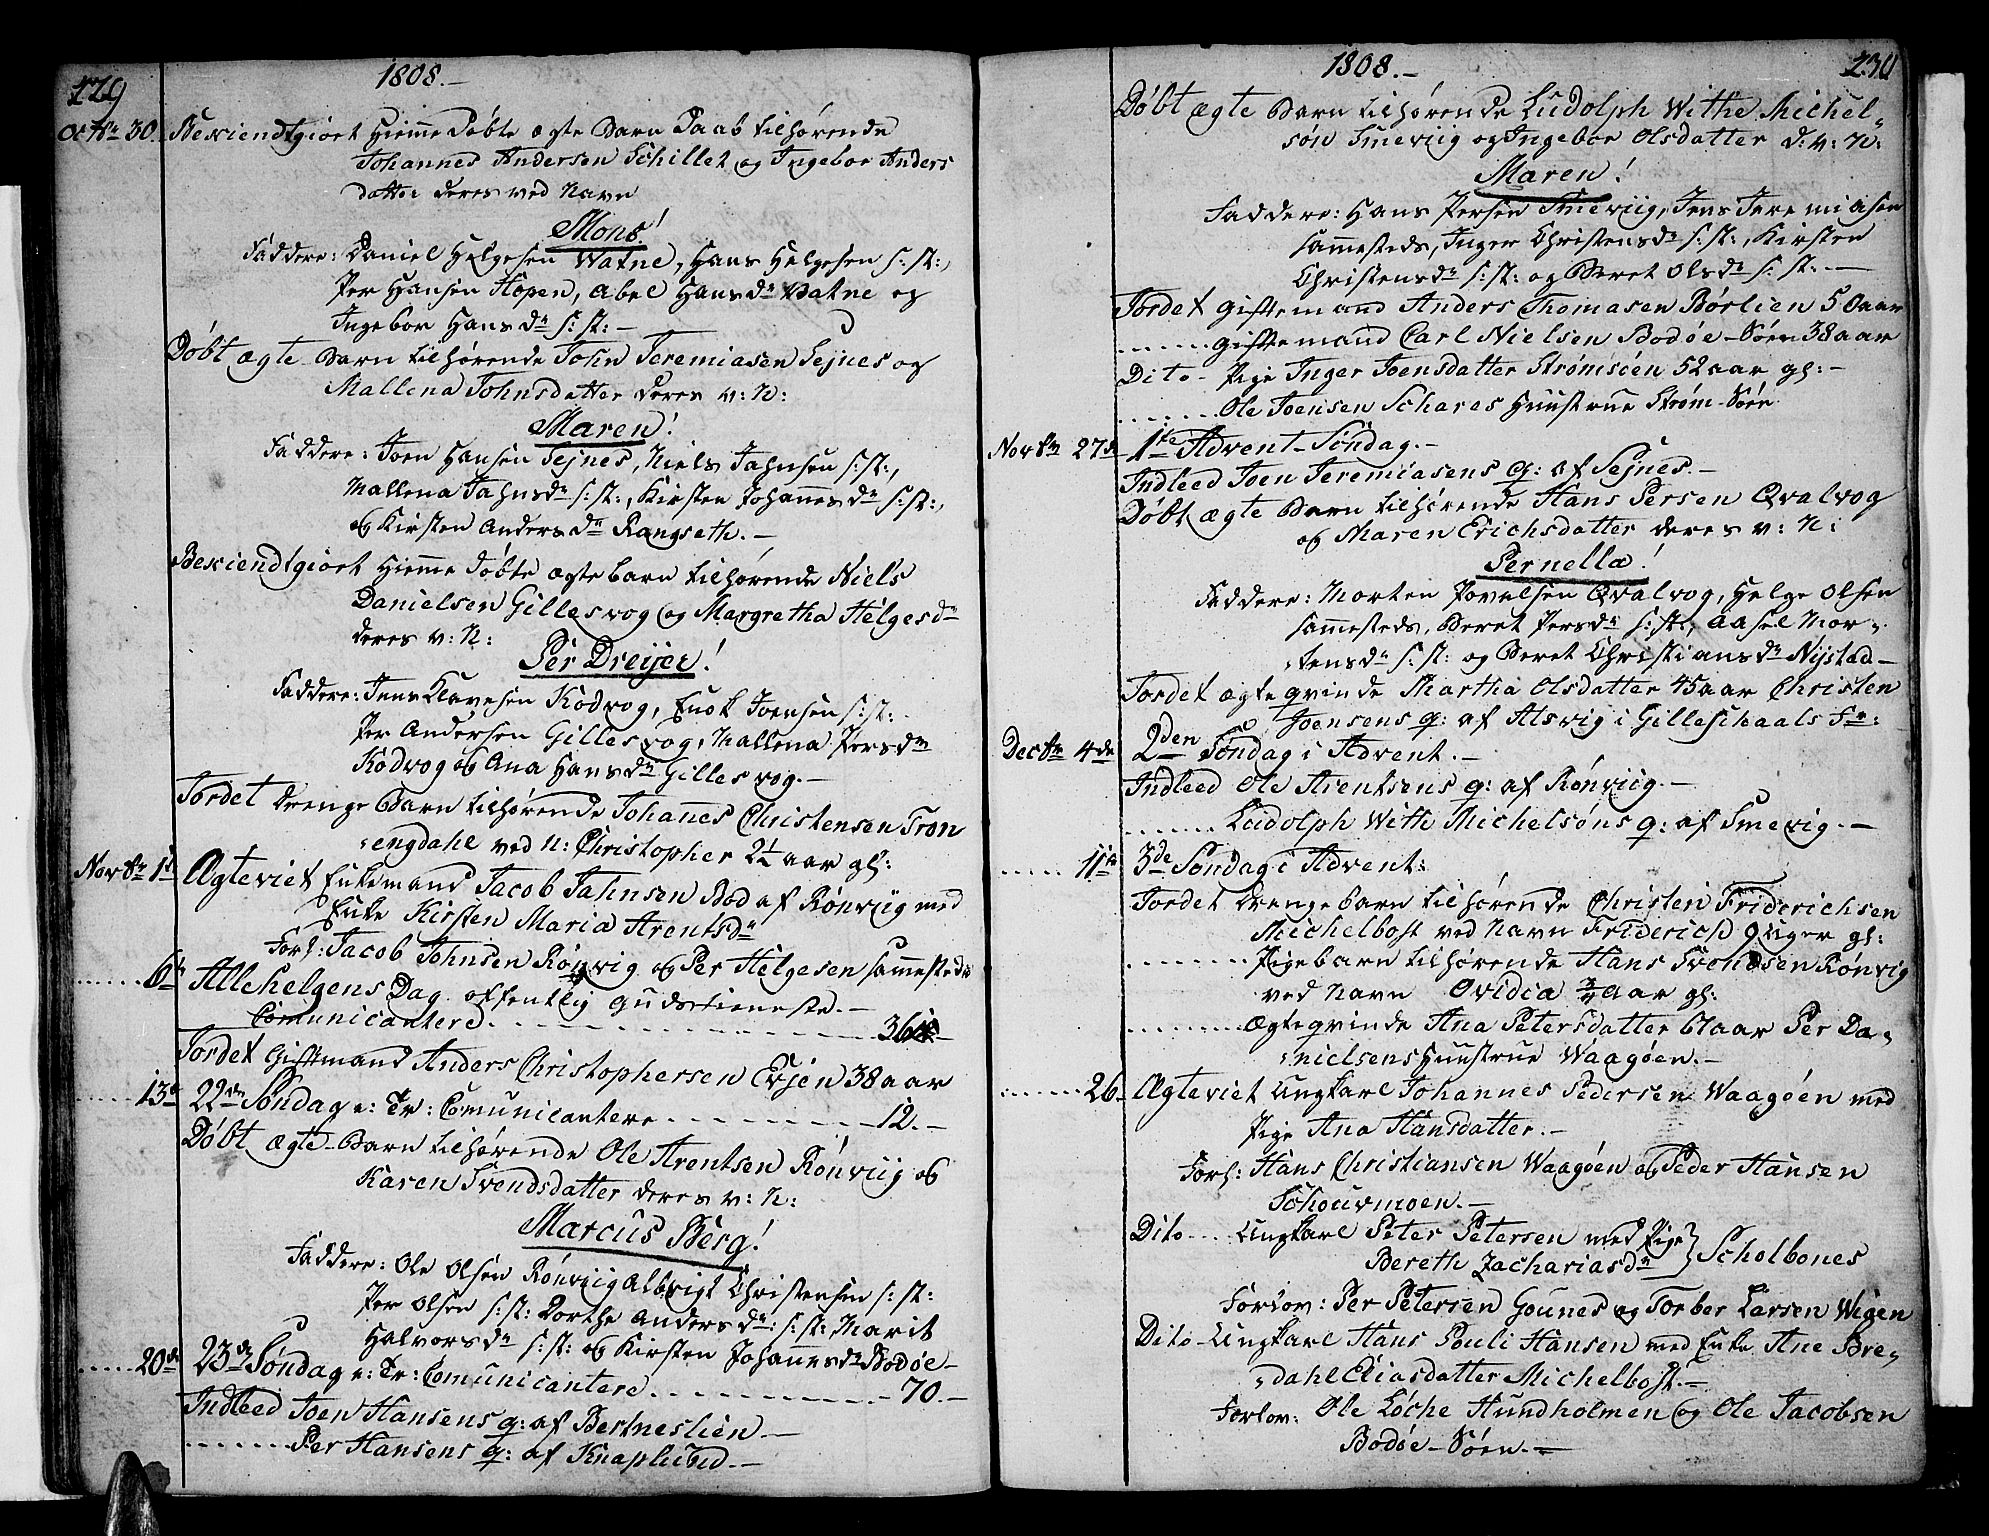 229
1808.-
Octbr 30. Bekiendtgiort Hiemme Døbte ægte Barn Daab tilhørende
Johannes Andersen Schillet og Ingebor Anders
datter deres ved Navn
Mons!
Faddere: Daniel Helgesen Watne, Hans Helgesen s: st:,
Per Hansen Hopen, Abel Hansdr Vatne og
Ingebor Hansdr s: st: -
Døbt ægte Barn tilhørende John Jeremiasen Sejnes og
Mallena Johnsdatter deres v: N:
Maren!
Faddere: Joen Hansen Sejnes, Niels Jahnsen s: st:,
Mallena Jahnsdr s: st:, Kirsten Johannesdr s: st:,
og Kirsten Andersdr Rangseth. -
Bekiendtgiort Hiemme Døbte ægte barn tilhørende Niels
Danielsen Gillesvog og Margretha Helgesdr
deres v: N:
Per Dreyer!
Faddere: Jens Klavesen Kodvog, Enok Joensen s: st:
Per Andersen Gillesvog, Mallena Persdr
Kodvog og Ana Hansdr Gillesvog. -
Jordet Drenge Barn tilhørende Johanes Christensen Tron
engdahl ved N: Christopher 2¼ aar gl:
Novbr 1ste Ægteviet Enkemand Jacob Jahnsen Bod af Rønviig med
Enke Kirsten Maria Arentsdr
Forl: Jacob Johnsen Rønvig og Per Helgesen sammesteds
6te Allehelgens Dag offentlig gudstieneste. -
Comunicantere - - - 36
Jordet Giftmand Anders Christophersen Evjen 38 aar
13de 22de Søndag e: Tr: Comunicantere - - - 12. -
Døbt ægte Barn tilhørende Ole Arentsen Rønviig og
Karen Svendsdatter deres v: N:
Marcus Berg!
Faddere: Ole Olsen Rønviig Albrigt Christensen s: st:
Per Olsen s: st: Dorthe Andersdr: s: st: Marit
Halvorsdr s: st: og Kirsten Johannesdr Bodøe -
20de 23de Søndag e: Tr: Comunicantere - - - 70. -
Indleed Joen Hansens q: af Bertneslien. -
Per Hansens q: af Knaplund. -
230
1808. -
Døbt ægte Barn tilhørende Ludolph Withe Michel-
søn Smeviig og Ingebor Olsdatter d: v: N:
Maren!
Faddere: Hans Persen Smeviig, Jens Jeremiasen
sammesteds, Inger Christensdr s: st:, Kirsten
Christensdr s: st: og Beret Olsdr s: st: -
Jordet giftemand Anders Thomasen Børlien 50 aar
giftemand Carl Nielsen Bodøe-Søen 38 aar
Dito - Pige Inger Joensdatter Strømsøen 52 aar gl: -
Ole Joensen Schares Huustrue Strøm-Søen
Novbr 27de 1te Advent-Søndag. -
Indleed Joen Jeremiasens q: af Sejnes. -
Døbt ægte Barn tilhørende Hans Persen Qvalvog
og Maren Erichsdatter deres v: N:
Pernella!
Faddere: Morten Povelsen Qvalvog, Helge Olsen
sammesteds, Beret Persdr s: st:, Aasel Mor-
tensdr s: st: og Beret Christiansdr Nystad -
Jordet ægte qvinde Martha Olsdatter 45 aar Christen
Joensens q: af Alsvig i Gilleschaals Fr:
Decbr 4de 2den Søndag i Advent. -
Indleed Ole Arentsens q: af Rønviig. -
Ludolph With Michelsøns q: af Smevig. -
11te 3de Søndag i Advent:
Jordet Drenge barn tilhørende Christen Friderichsen
Michelbost ved Navn Friderich 9 uger gl:
Pigebarn tilhørende Hans Svendsen Rønvig
ved Navn Ovidia ¾ aar gl:
Ægteqvinde Ana Petersdatter 61 aar Per Da-
nielsens Huustrue Waagøen. -
26. Ægteviet Ungkarl Johannes Pedersen Waagøen med
Pige Ana Hansdatter. -
Forl: Hans Christiansen Waagøen og Peder Hansen
Schousmoen. -
Dito Ungkarl Peter Petersen med Pige
Bereth Zachariasdr } Scholbones
Forlov: Per Petersen Gounes og Torber Larsen Wigen
Dito Ungkarl Hans Pouli Hansen med Enke Ane Bre-
dahl Eliasdatter Michelbost. -
Forlov: Ole Løche Hundholmen og Ole Jacobsen
Bodøe-Søen. -